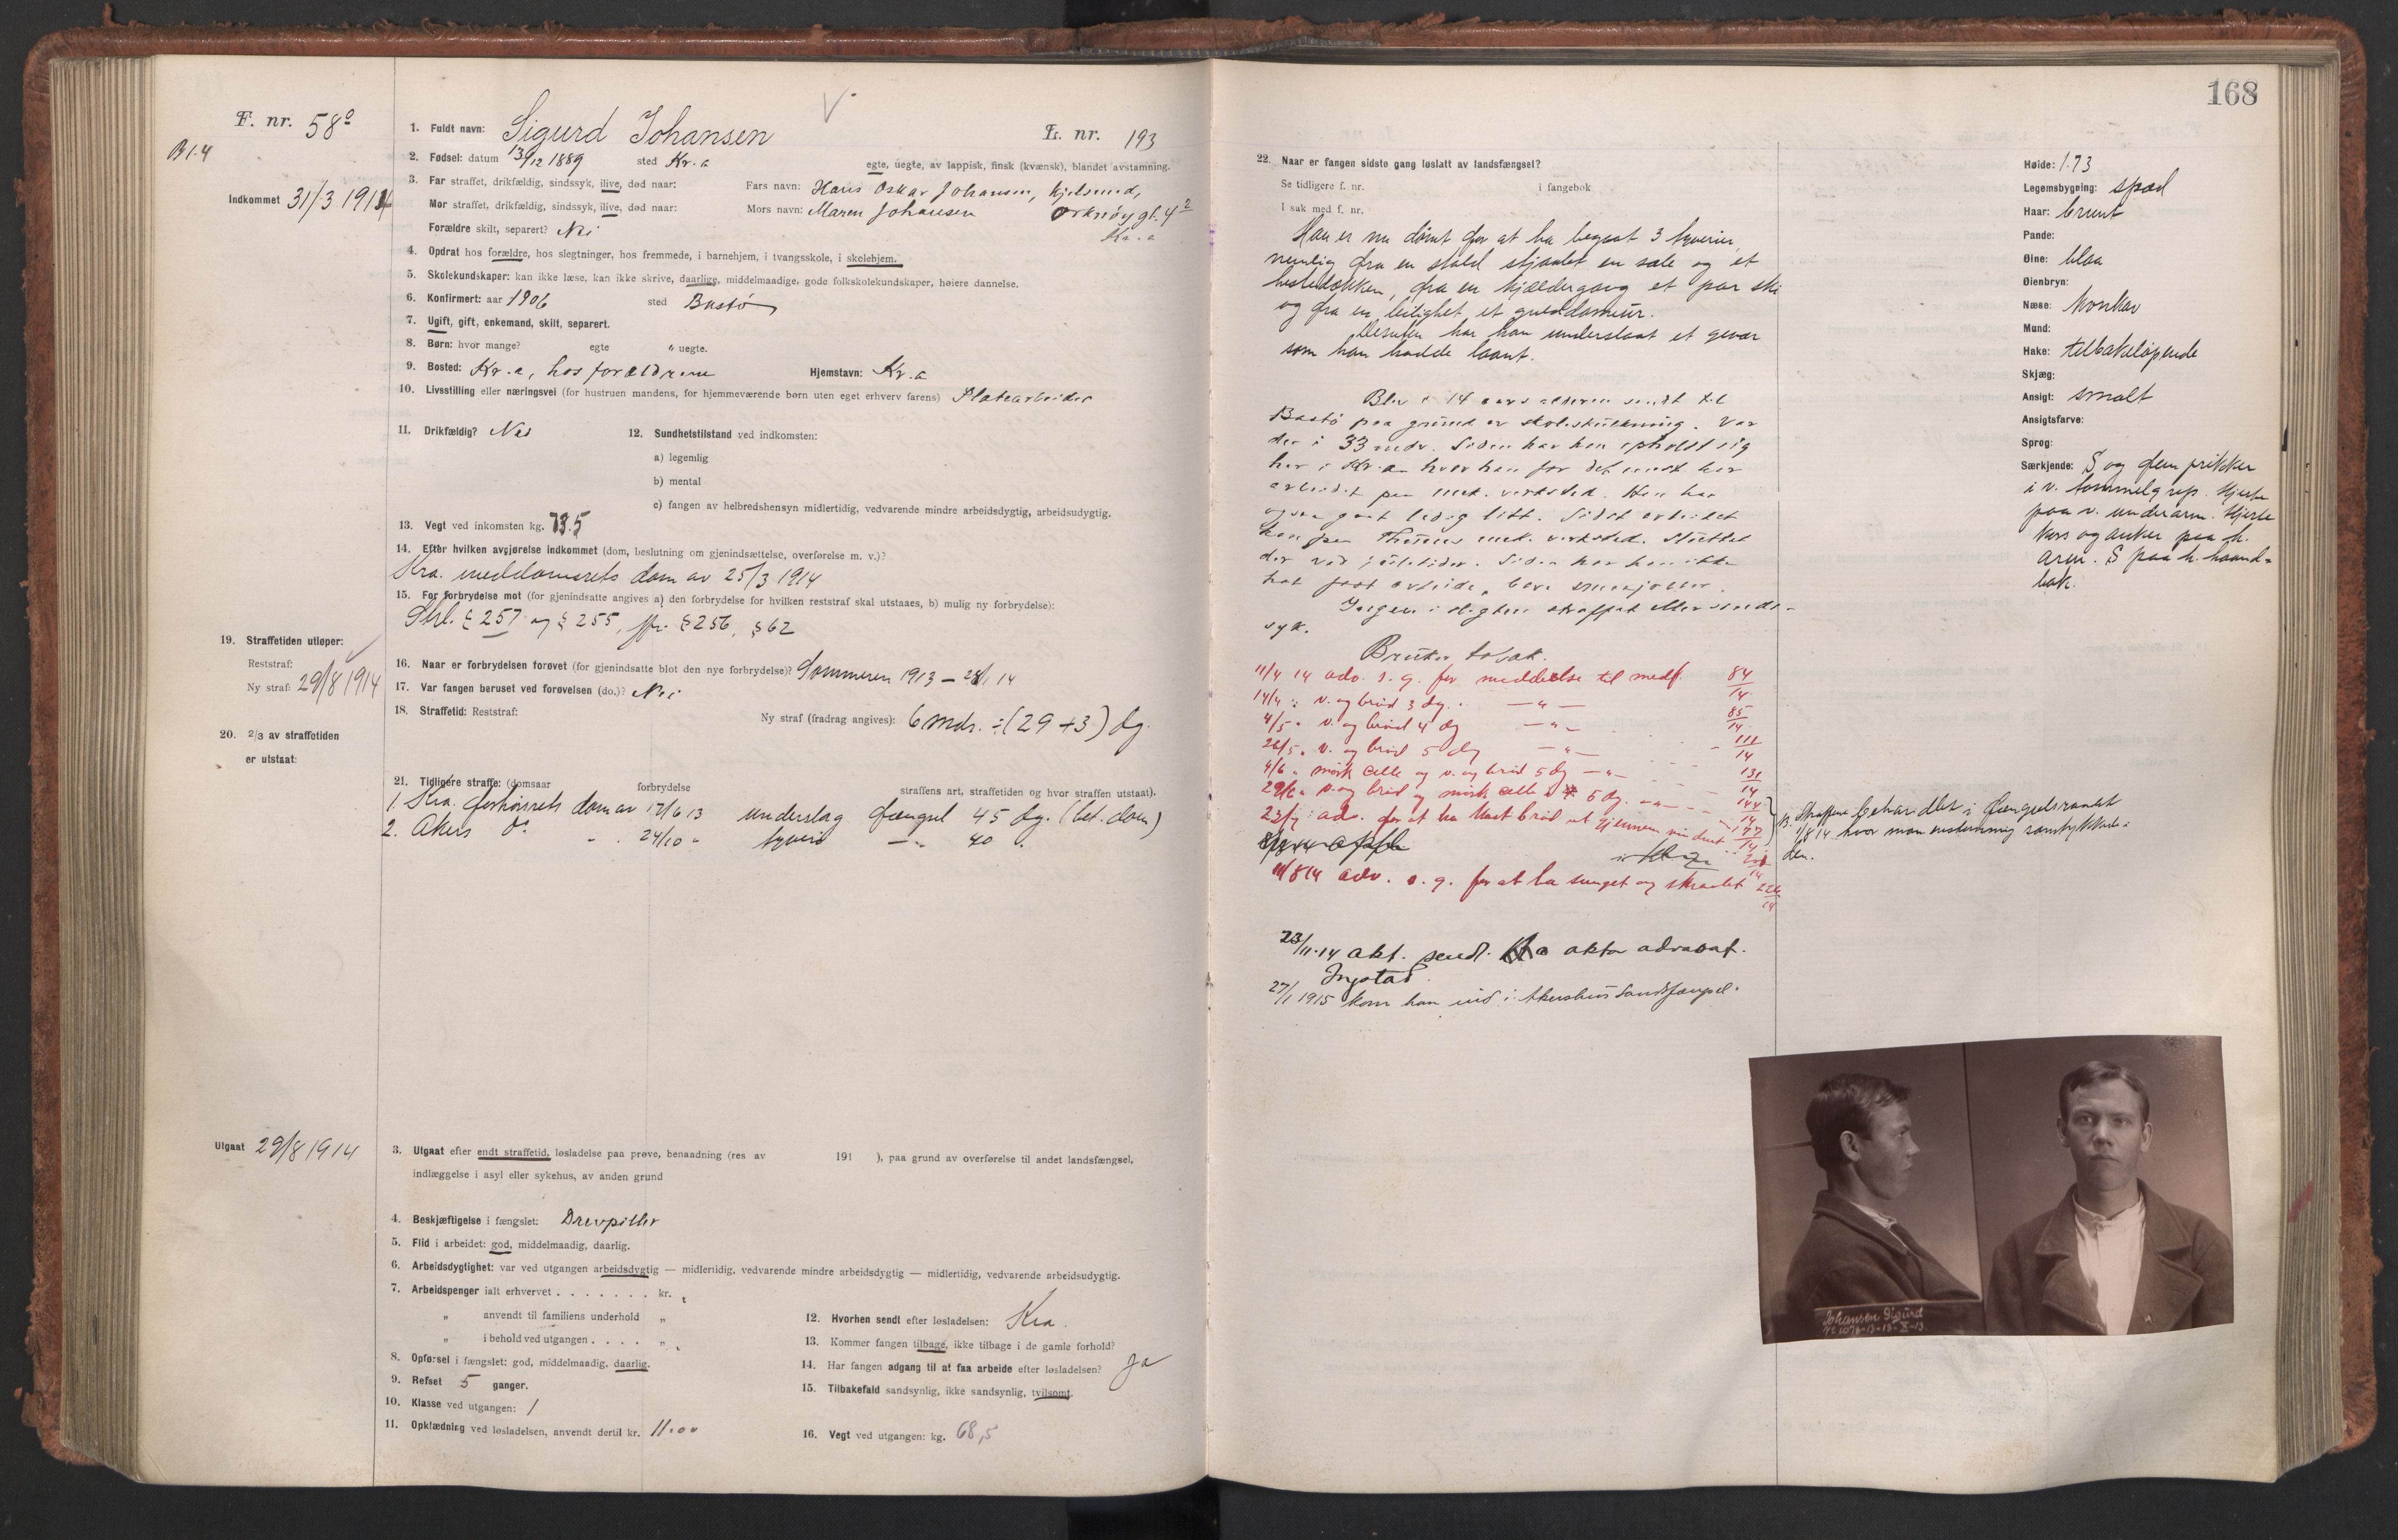 F. nr. 58a
B 1.4
Indkommet 31/3 1914
1. Fuldt navn: Sigurd Johansen
L. nr. 193
2. Fødsel: datum 13/12 1889 sted Kr.a
egte, uegte, av lappisk, finsk (kvænsk), blandet avstamning.
3. Far straffet, drikfældig, sindssyk, ilive, død naar:
Fars navn: Hans Oskar Johansen,
Mor straffet, drikfældig, sindssyk, ilive, død naar:
Mors navn: Maren Johansen
Kr.a
Forældre skilt, separert? Nei
4. Opdrat hos forældre, hos slegtninger, hos fremmede, i barnehjem, i tvangsskole, i skolehjem.
5. Skolekundskaper: kan ikke læse, kan ikke skrive, daarlige, middelmaadige, gode folkskolekundskaper, høiere dannelse.
6. Konfirmert: aar 1906 sted Bastø
7. Ugift, gift, enkemand, skilt, separert.
8. Børn: hvor mange? egte " uegte.
9. Bosted: Kr.a, hos forældrene Hjemstavn: Kr.a
10. Livsstilling eller næringsvei (for hustruen mandens, for hjemmeværende børn uten eget erhverv farens) Platearbeider
11. Drikfældig? Nei
12. Sundhetstilstand ved indkomsten:
a) legemlig
b) mental
c) fangen av helbredshensyn midlertidig, vedvarende mindre arbeidsdygtig, arbeidsudygtig.
13. Vegt ved inkomsten kg. 73.5
14. Efter hvilken avgjørelse indkommet (dom, beslutning om gjenindsættelse, overførelse m. v.)?
Kra. meddomsrets dom av 25/3 1914
15. For forbrydelse mot (for gjenindsatte angives a) den forbrydelse for hvilken reststraf skal utstaaes, b) mulig ny forbrydelse):
Strl. § 257 og § 255, jfr. § 256, § 62
19. Straffetiden utløper:
Reststraf:
Ny straf: 29/8 1914
16. Naar er forbrydelsen forøvet (for gjenindsatte blot den nye forbrydelse)? Sommeren 1913 – 28/1 14
17. Var fangen beruset ved forøvelsen (do.)? Nei
18. Straffetid: Reststraf:
Ny straf (fradrag angives): 6 mdr. ÷ (29 + 3) dg.
20. 2/3 av straffetiden
er utstaat:
21. Tidligere straffe: (domsaar forbrydelse straffens art, straffetiden og hvor straffen utstaat).
1. Kra. forhørsrets dom av 17/6 13 underslag fængsel 45 dg. (bet. dom)
2. Akers do - . 24/10 - tyveri —"- 40 .
Utgaat 29/8 1914
3. Utgaat efter endt straffetid, løsladelse paa prøve, benaadning (res av 191 ), paa grund av overførelse til andet landsfængsel,
indlæggelse i asyl eller sykehus, av anden grund
4. Beskjæftigelse i fængslet: Drevpiller
5. Flid i arbeidet: god, middelmaadig, daarlig.
6. Arbeidsdygtighet: var ved utgangen arbeidsdygtig — midlertidig, vedvarende mindre arbeidsdygtig — midlertidig, vedvarende arbeidsudygtig.
7. Arbeidspenger ialt erhvervet . . . . . . . kr.
" anvendt til familiens underhold "
" i behold ved utgangen . . . . "
8. Opførsel i fængslet: god, middelmaadig, daarlig.
9. Refset 5 ganger.
10. Klasse ved utgangen: 1
11. Opklædning ved løsladelsen, anvendt dertil kr. 11.00
12. Hvorhen sendt efter løsladelsen: Kra.
13. Kommer fangen tilbage, ikke tilbage i de gamle forhold?
14. Har fangen adgang til at faa arbeide efter løsladelsen? Ja
15. Tilbakefald sandsynlig, ikke sandsynlig, tvilsomt.
16. Vegt ved utgangen: kg. 68,5
168
22. Naar er fangen sidste gang løslatt av landsfængsel?
Se tidligere f. nr. i fangebok
I sak med f. nr.
Han er nu dømt for at ha begaat 3 tyverier,
nemlig fra en stald stjaalet en sæle og et
hestedækken, fra en kjældergang et par ski
og fra en leilighet et gulddameur.
Desuten har han underslaat et gevær
som han hadde laant.
Blev i 14 aars alderen sendt til
Bastø paa grund av skoleskulkning. Var
der i 33 mdr. Siden har han opholdt sig
her i Kr.a hvor han for det mest har
arbeidet paa mek. verksted. Han har
ogsaa gaat ledig litt. Sidst arbeidet
han paa Thunes mek. verksted. Sluttet
der ved juletider. Siden har han ikke
hat fast arbeide, bare smaajobber.
Ingen i slegten straffet eller sinds-
syk.
Bruker tobak.
11/4 14 adv. s. g. for meddelelse til medf. 84/14
14/4 " v. og brød 3 dg. — " — 85/14
4/5 " v. og brød 4 dg — " — 111/14
26/5 " v. og brød 5 dg — " — 131/14
4/6 " mørk celle og v. og brød 5 dg — " — 144/14
29/6 " v. og brød og mørk celle 5 dg. — " — 177/14
23/7 " adv. for at ha kast brød ut gjennem vinduet
11/8 14 adv. s. g. for at ha sunget og skraalet 226/14
Straffene behandlet i fængselsraadet
1/8 14 hvor man enstemmig samtykkede i
den.
23/11-14 akt. sendt aktor advocat
Ingstad.
27/1 1915 kom han ind i Akershus landsfængsel.
Høide: 1.73
Legemsbygning: spæd
Haar: brunt
Pande:
Øine: blaa
Øienbryn:
Næse: konkav
Mund:
Hake: tilbakeløpende
Skjæg:
Ansigt: smalt
Ansigtsfarve:
Sprog:
Særkjende: S og fem prikker
i v. tommelgrep. Hjerte
paa v. underarm. Hjerte
kors og anker paa h.
arm. S paa h. haand-
bak.
Johansen Sigurd